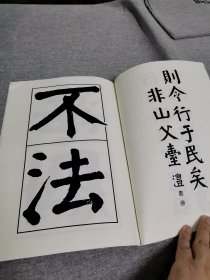 則令行于民矣
非山父臺 澧
不法